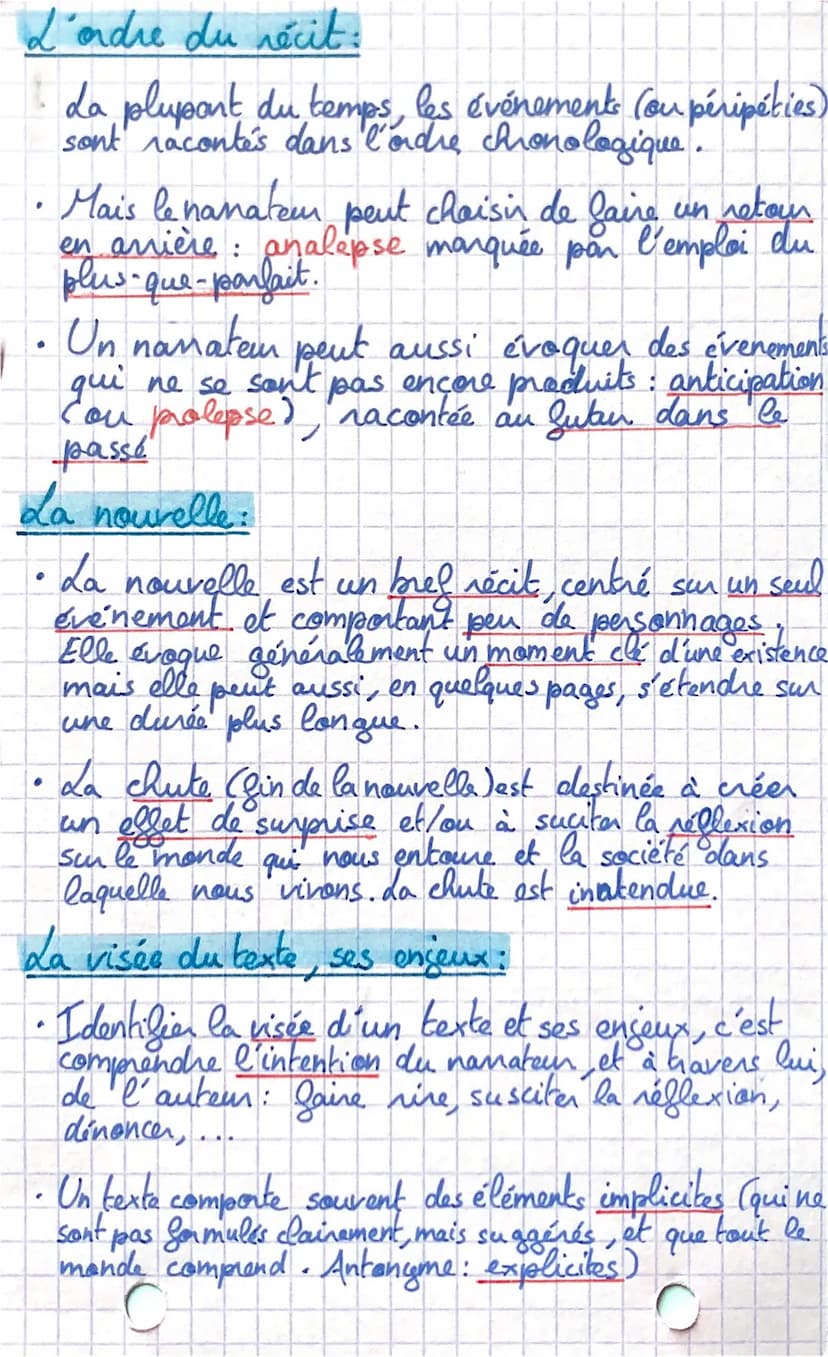 L'ordre du récit :
La plupart du temps, les événements (ou péripéties)
sont racontés dans l'ordre chronologique.
• Mais le narrateur peut choisir de faire un retour
en arrière : analepse marquée par l'emploi du
plus-que-parfait.
• Un narrateur peut aussi évoquer des évenements
qui ne se sont pas encore produits : anticipation
(ou prolepse), racontée au futur dans le
passé
La nouvelle :
• La nouvelle est un bref récit, centré sur un seul
événement et comportant peu de personnages.
Elle évoque généralement un moment clé d'une existence
mais elle peut aussi, en quelques pages, s'étendre sur
une durée plus longue.
• La chute (fin de la nouvelle) est destinée à créer
un effet de surprise et/ou à suciter la réflexion
sur le monde qui nous entoure et la société dans
laquelle nous vivons. La chute est inatendue.
La visée du texte, ses enjeux :
• Identifier la visée d'un texte et ses enjeux, c'est
comprendre l'intention du narrateur, et à travers lui,
de l'auteur : faire rire, susciter la réflexion,
dénoncer, ...
• Un texte comporte souvent des éléments implicites (qui ne
sont pas formulés clairement, mais suggérés, et que tout le
monde comprend. Antonyme : explicites)